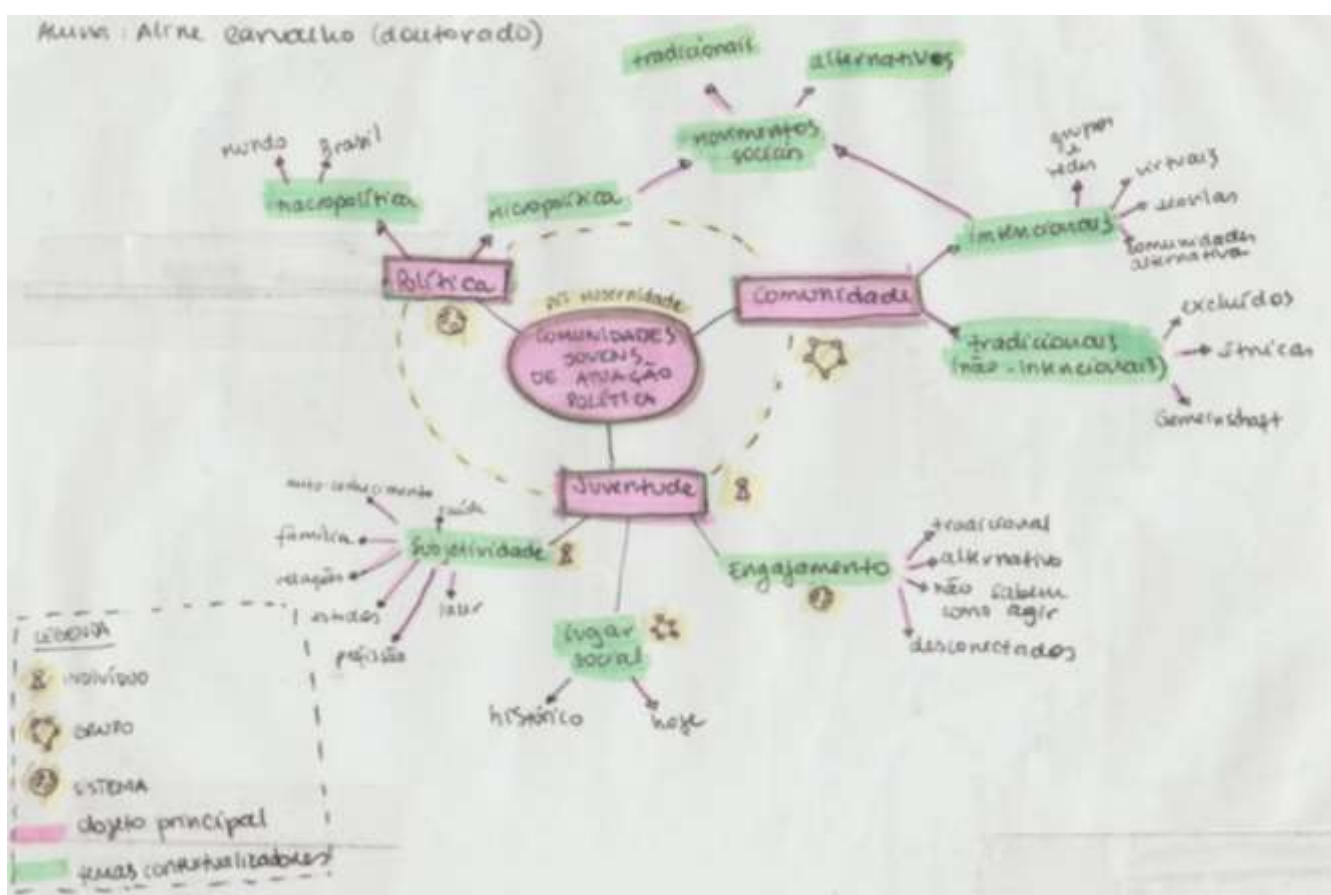 Aluna: Aline Carvalho (doutorado)
tradicionais
alternativos
movimentos
sociais
mundo
Brasil
macropolítica
micropolítica
grupos
e
redes
virtuais
intencionais
comunidades
alternativas
Política
pós modernidade
Comunidade
COMUNIDADES
JOVENS
DE ATUAÇÃO
POLÍTICA
tradicionais
(não-intencionais)
excluídos
étnicas
Gemeinschaft
Juventude
auto conhecimento
saúde
família
Subjetividade
relação
estudos
lazer
profissão
Engajamento
tradicional
alternativo
não sabem
como agir
desconectados
lugar
social
histórico
hoje
LEGENDA
INDIVÍDUO
GRUPO
SISTEMA
objeto principal
temas contextualizadores